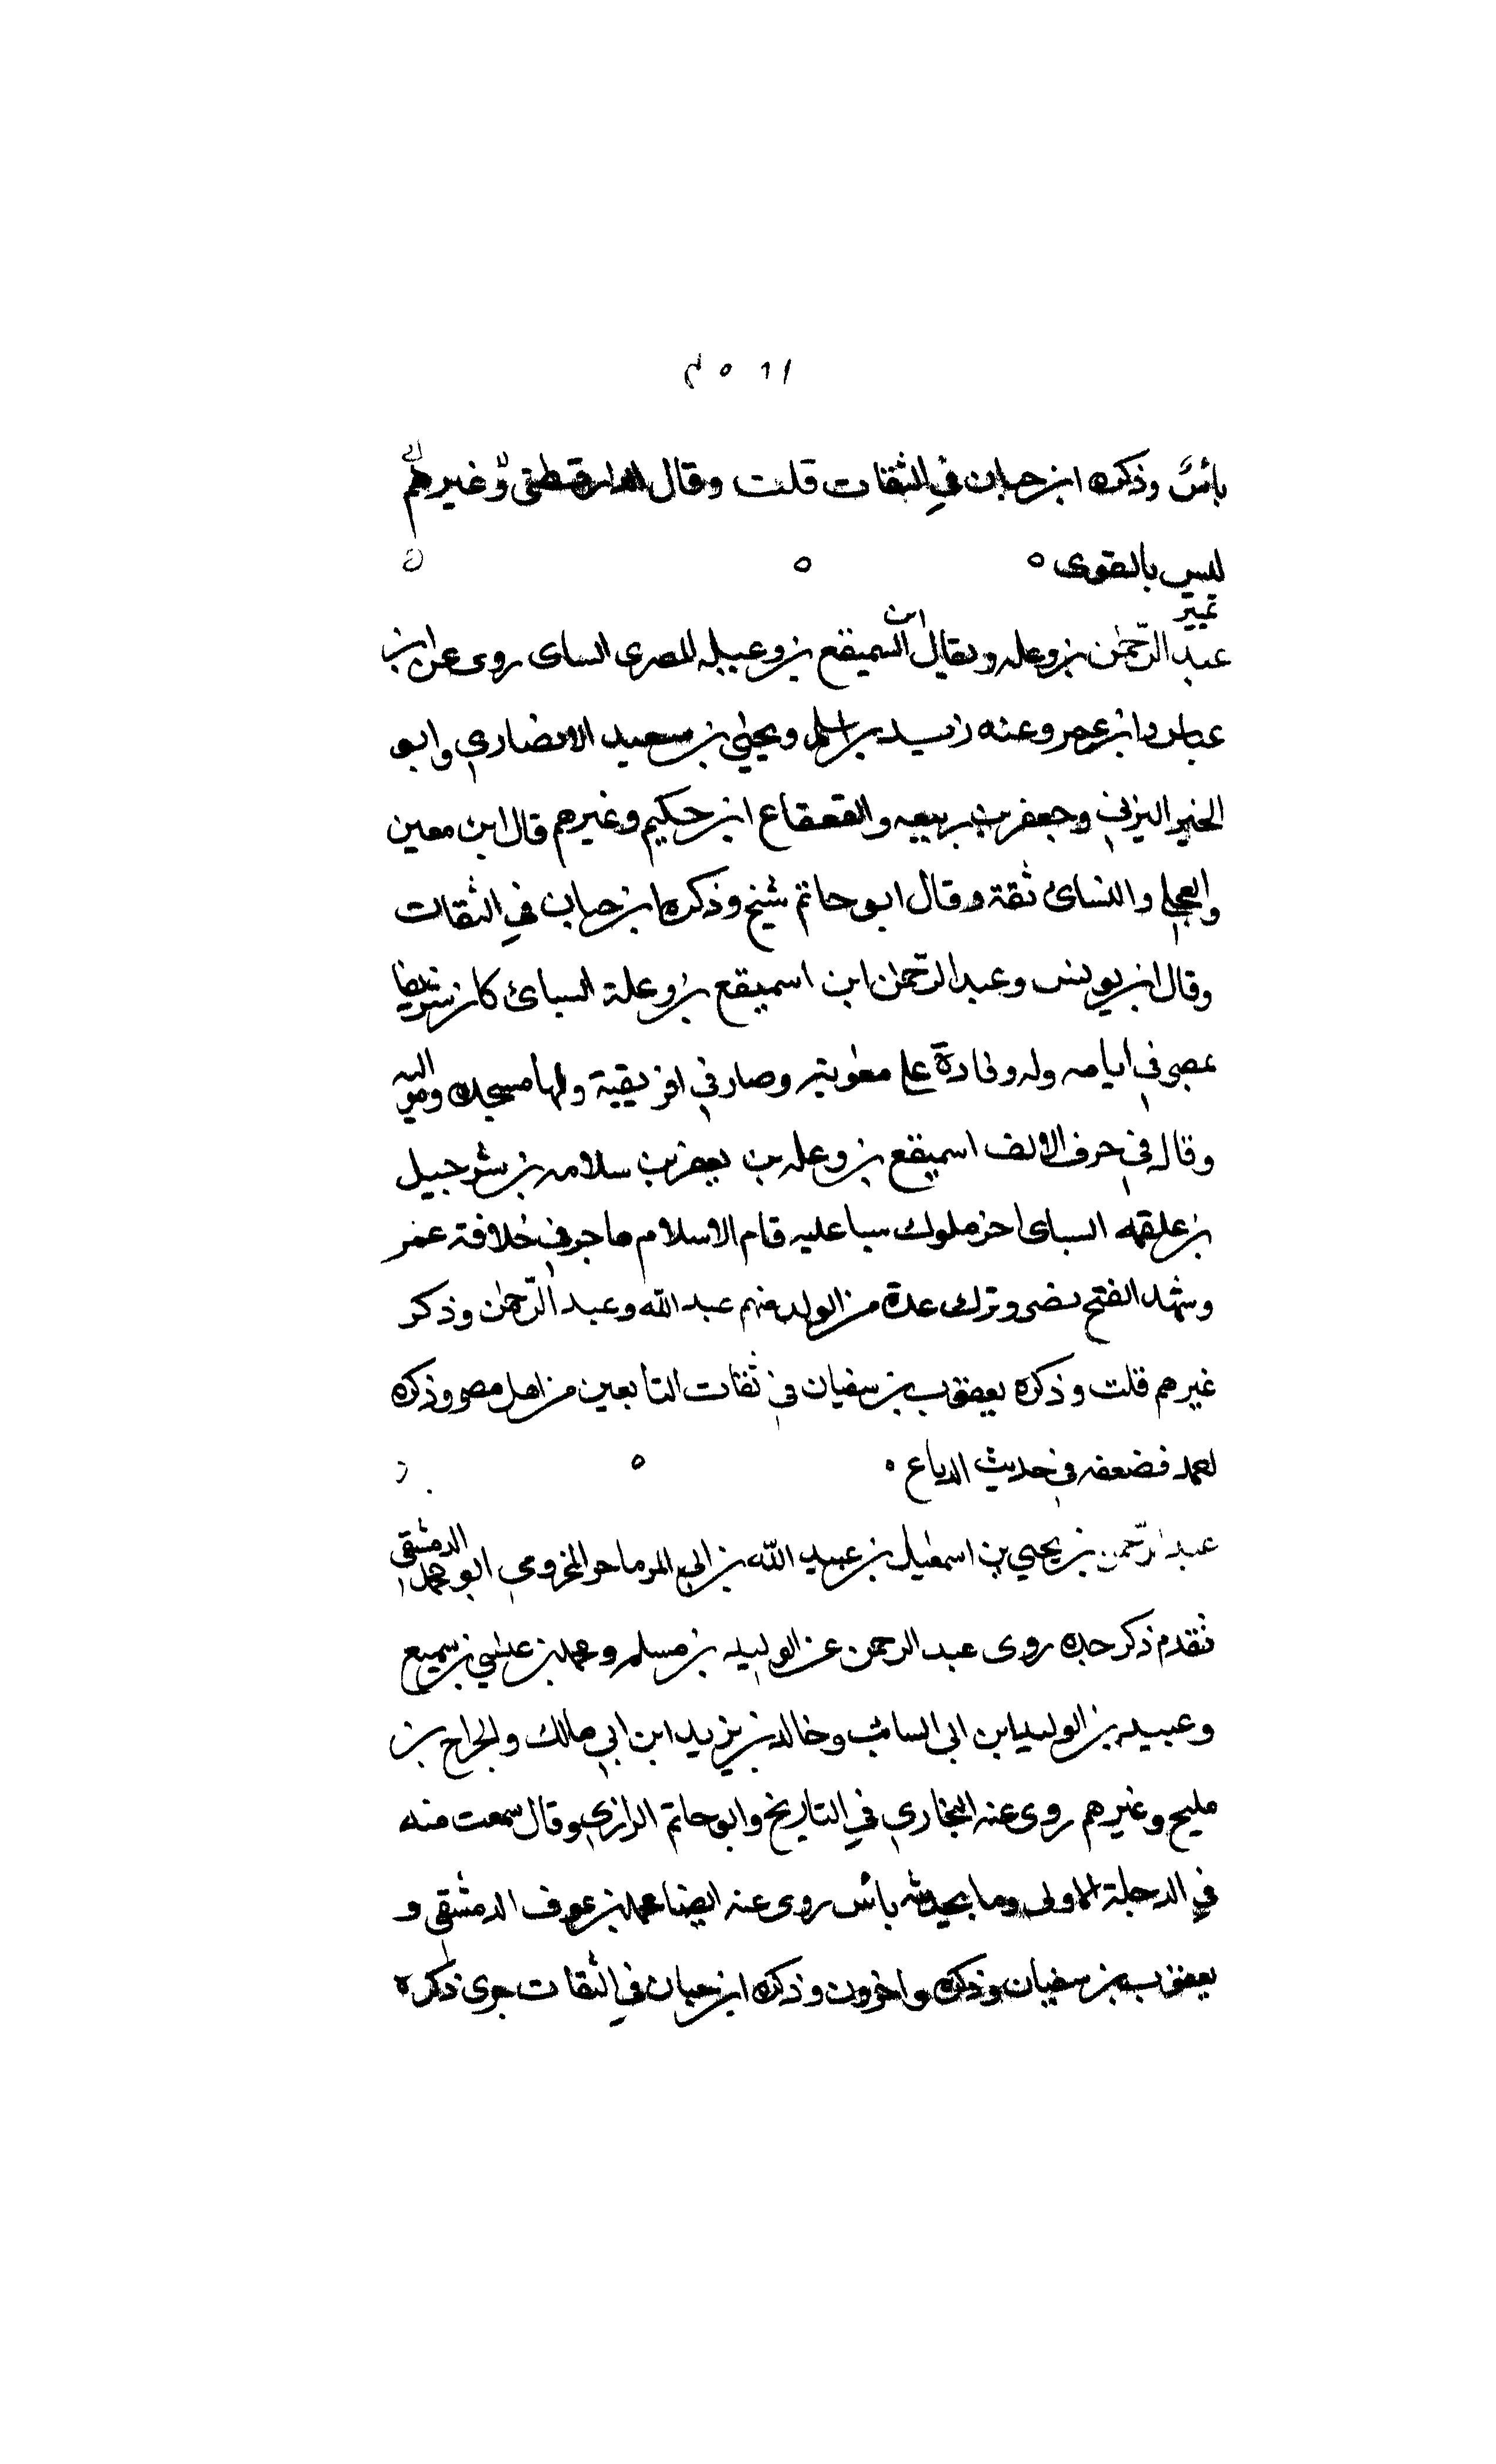 بأس وذكره ابن حبان في الثقات قلت وقال الدارقطني وغيرهم
ليس بالقوى ه ه
تمييز
عبد الرحمن بن وعله ويقال ابن السميقع بن وعبله المصرى السباى روى عن ابن
عباس وابن عمر وعنه زيد بن اسلم ويحيى بن سعيد الانصاري وابو
الخير اليزني وجعفر بن ربيعه والقعقاع ابن حكيم وغيرهم قال ابن معين
والعجلي والنسائ ثقة وقال ابو حاتم شيخ وذكره ابن حبان في الثقات
وقال ابن يونس وعبد الرحمن ابن اسميقع بن وعلة السبائ كان شريفا
بمصر في ايامه وله وفادة على معوية وصار في افريقية ولها مسجده ومواليه
وقال في حرف الالف اسميقع بن وعله بن يعفر بن سلامه بن شرحبيل
بن علقمه السباى اخر ملوك سبا عليه قام الاسلام هاجر في خلافة عمر
وشهد الفتح بمصر وترك عدة من الولد منهم عبد الله وعبد الرحمن وذكر
غيرهم قلت وذكره يعقوب بن سفيان في ثقات التابعين من اهل مصر وذكره
احمد فضعفه في حديث الدباغ ه ه
عبد الرحمن بن يحيى بن اسمعيل بن عبيد الله بن ابي المهاجر المخزومي ابو محمد الدمشقي
تقدم ذكر جده روى عبد الرحمن عن الوليد بن مسلم ومحمد بن عيسى بن سميع
وعبيد بن الوليد ابن ابى السائب وخالد بن يزيد ابن ابي مالك والجراح بن
مليح وغيرهم روى عنه البخاري في التاريخ وابو حاتم الرازي وقال سمعت منه
في الدحلة الاولى وما بحديثه بأس روى عنه ايضا محمد بن عوف الدمشقي و
يعقوب بن سفيان وذكره واخرون وذكره ابن حبان في الثقات جرى ذكره